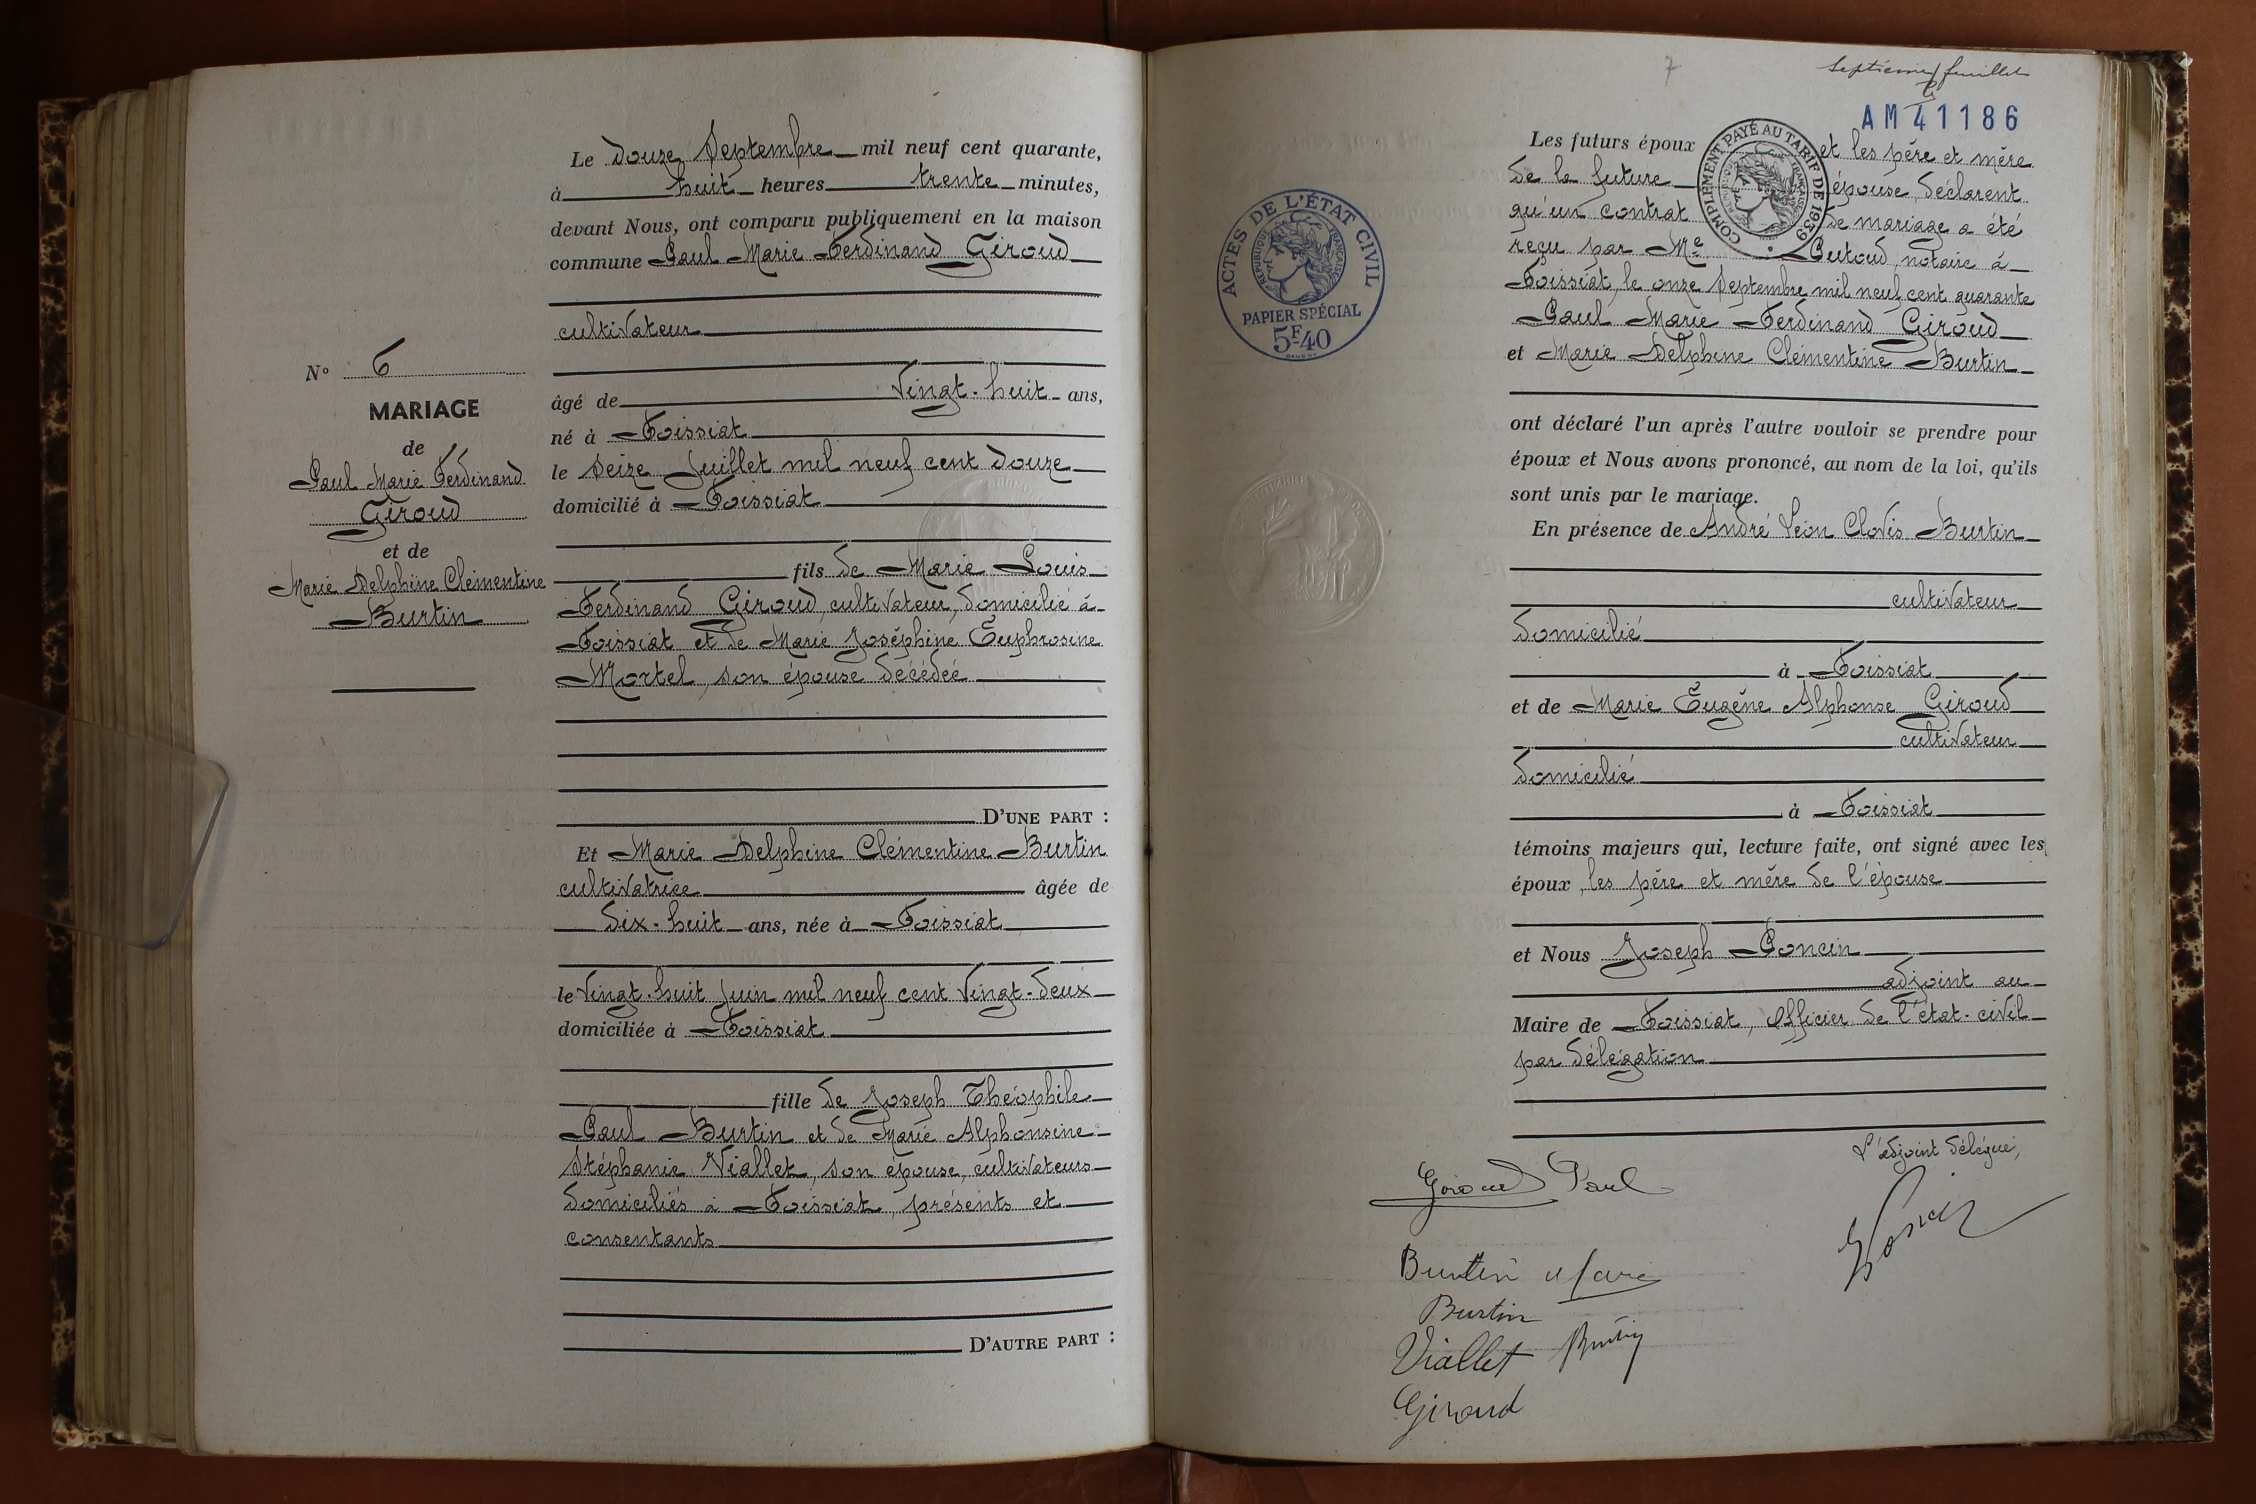 N° 6
MARIAGE
de
Paul Marie Ferdinand
Giroud
et de
Marie Delphine Clémentine
Burtin
Le douze Septembre mil neuf cent quarante,
à huit heures trente minutes,
devant Nous, ont comparu publiquement en la maison
commune Paul Marie Ferdinand Giroud
cultivateur
âgé de vingt-huit ans,
né à Foissiat
le seize Juillet mil neuf cent douze
domicilié à Foissiat
fils de Marie Louis
Ferdinand Giroud, cultivateur, domicilié à
Foissiat et de Marie Joséphine Euphrosine
Mortel, son épouse décédée
D'UNE PART :
Et Marie Delphine Clémentine Burtin
cultivatrice âgée de
dix-huit ans, née à Foissiat
le vingt-huit Juin mil neuf cent vingt-deux
domiciliée à Foissiat
fille de Joseph Théophile
Paul Burtin et de Marie Alphonsine
Stéphanie Viallet, son épouse, cultivateurs
domiciliés à Foissiat, présents et
consentants
D'AUTRE PART :
7
Septième feuillet
AM 41186
ACTES DE L'ÉTAT CIVIL
RÉPUBLIQUE FRANÇAISE
PAPIER SPÉCIAL
5F40
COMPLÉMENT PAYÉ AU TARIF DE 1939
Les futurs époux et les père et mère
de la future épouse, déclarent
qu'un contrat de mariage a été
reçu par Me Putoud, notaire à
Foissiat, le onze Septembre mil neuf cent quarante
Paul Marie Ferdinand Giroud
et Marie Delphine Clémentine Burtin
ont déclaré l'un après l'autre vouloir se prendre pour
époux et Nous avons prononcé, au nom de la loi, qu'ils
sont unis par le mariage.
En présence de André Léon Clovis Burtin
cultivateur
domicilié
à Foissiat
et de Marie Eugène Alphonse Giroud
cultivateur
domicilié
à Foissiat
témoins majeurs qui, lecture faite, ont signé avec les
époux, les père et mère de l'épouse
et Nous Joseph Poncin
adjoint au
Maire de Foissiat, officier de l'état-civil
par délégation
L'adjoint délégué,
Giroud Paul
Poncin
Burtin Marie
Burtin
Viallet Burtin
Giroud